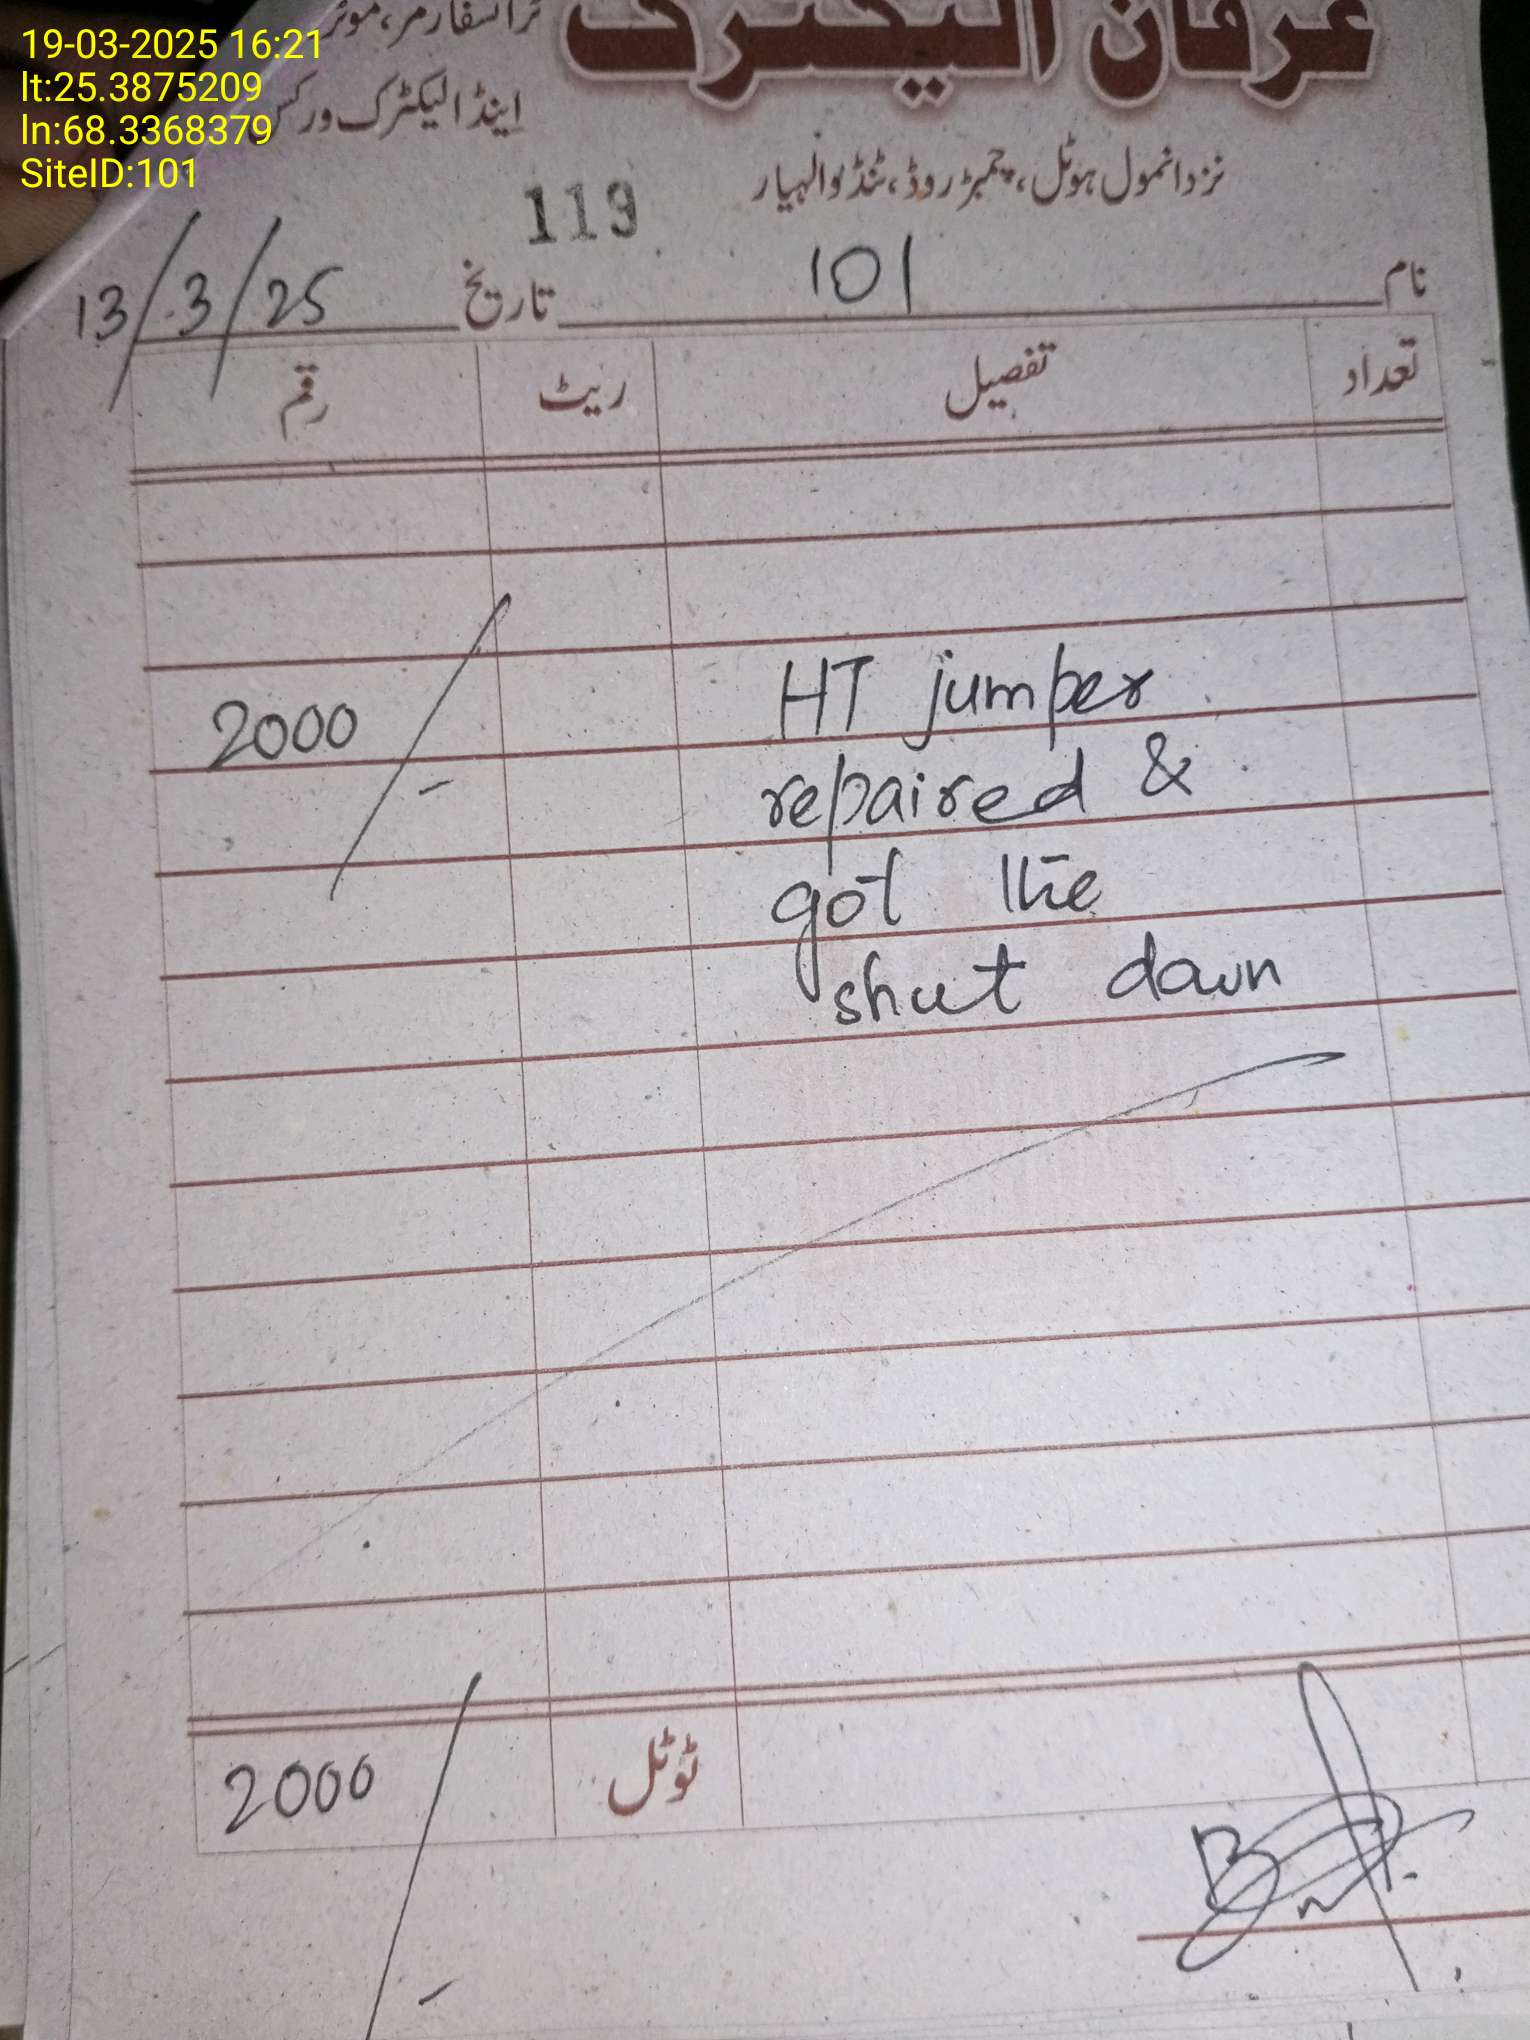 19-03-2025 16:21
lt:25.3875209
ln:68.3368379
SiteID:101
عرفان الیکٹرک
ٹرانسفارمر، موٹر
اینڈ الیکٹرک ورکس
نزد انمول ہوٹل، چمبڑ روڈ، ٹنڈوالہیار
119
نام 101 تاریخ 13/3/25
تعداد تفصیل ریٹ رقم
HT jumper 2000/-
repaired &
got the
shut down
ٹوٹل 2000/-